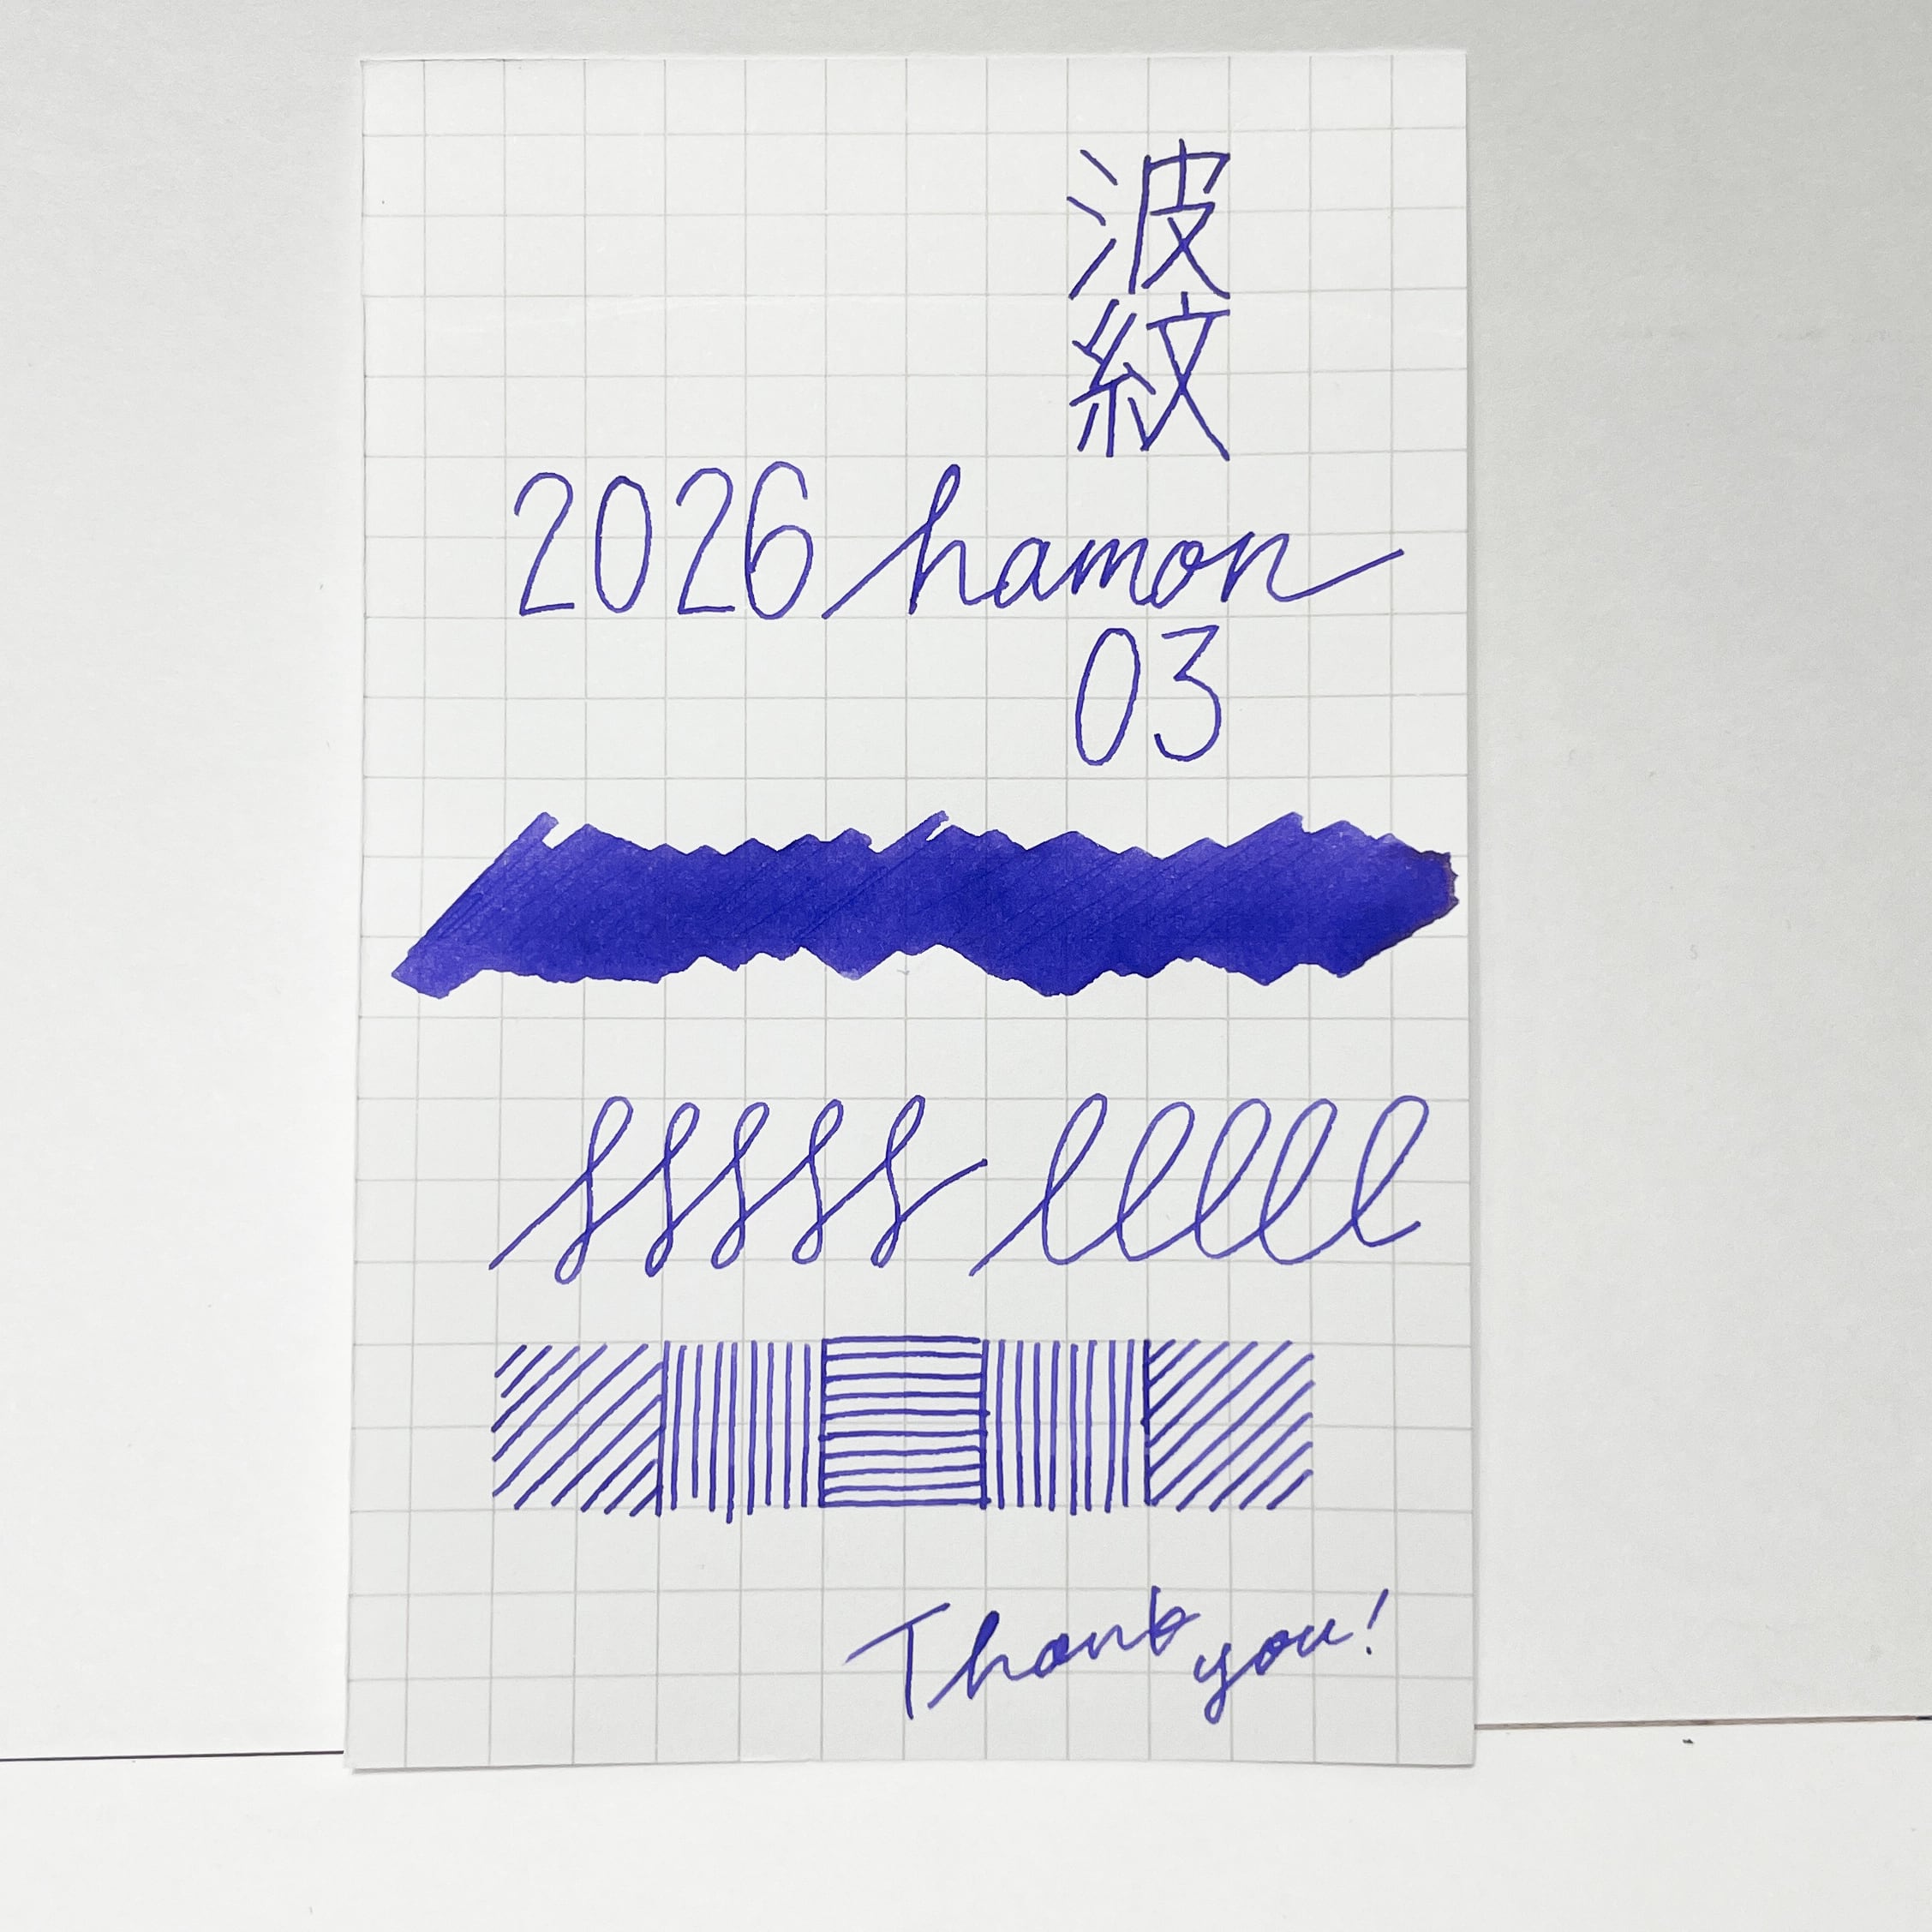 波紋
2026 hamon
03
sssss lllll
Thank you!